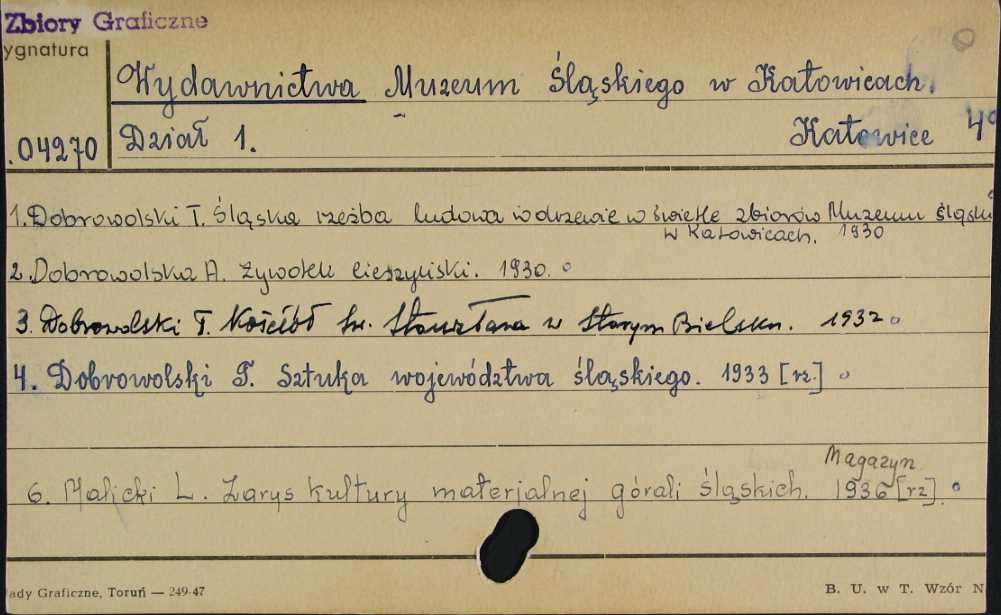 Zbiory Graficzne
ygnatura
Wydawnictwa Muzeum Śląskiego w Katowicach.
.04270 Dział 1. Katowice 4º
1. Dobrowolski T. Śląska rzeźba ludowa w drzewie w świetle zbiorów Muzeum Śląsk
w Katowicach. 1930
2. Dobrowolska A. Żywotek cieszyński. 1930.
3. Dobrowolski T. Kościół św. Stanisława w Starym Bielsku. 1932
4. Dobrowolski T. Sztuka województwa śląskiego. 1933 [rz.]
Magazyn
6. Malicki L. Zarys kultury materjalnej górali śląskich. 1936 [rz].
ady Graficzne, Toruń — 249-47 B. U. w T. Wzór N